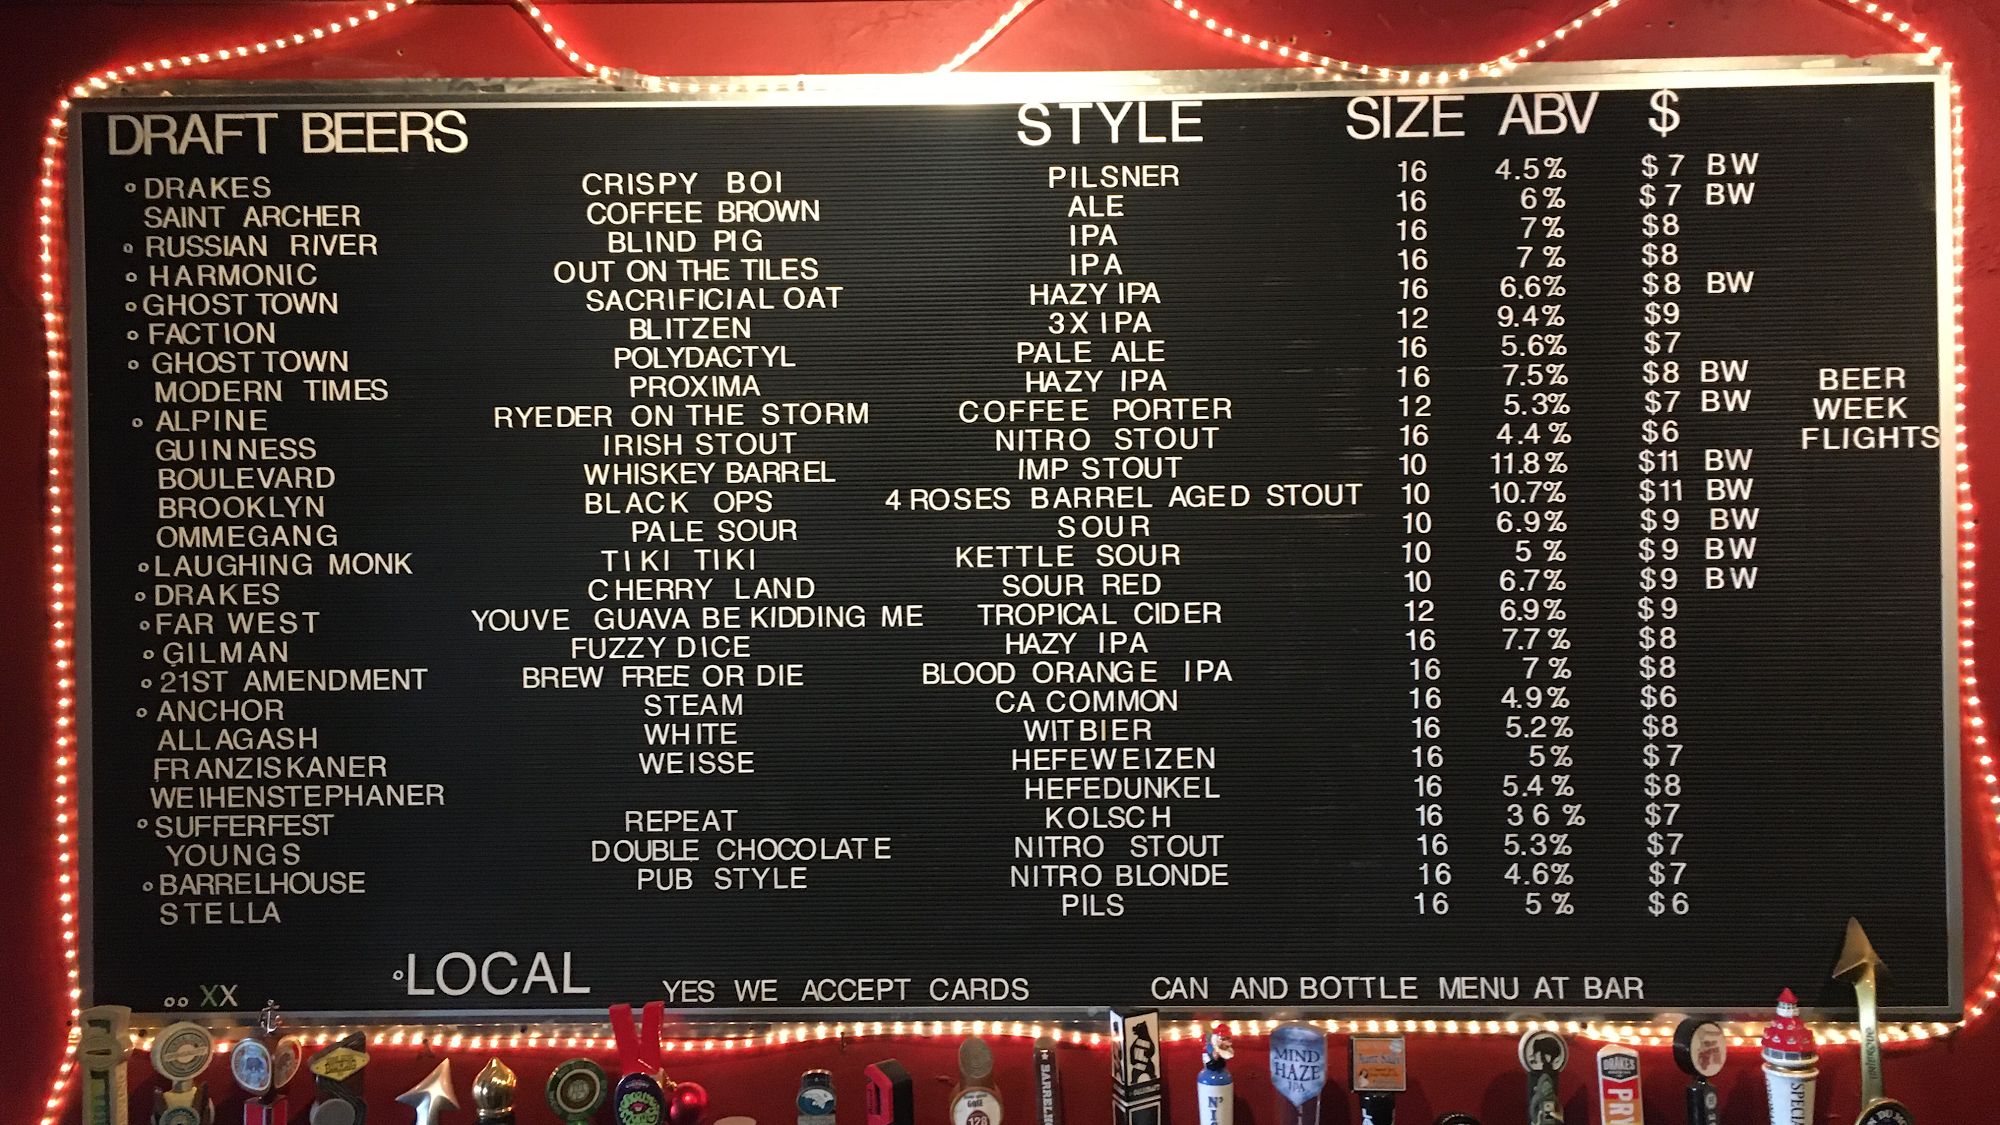 DRAFT BEERS STYLE SIZE ABV $
DRAKES CRISPY BOI PILSNER 16 4.5% $7 BW
SAINT ARCHER COFFEE BROWN ALE 16 6% $7 BW
RUSSIAN RIVER BLIND PIG IPA 16 7% $8
HARMONIC OUT ON THE TILES IPA 16 7% $8
GHOST TOWN SACRIFICIAL OAT HAZY IPA 16 6.6% $8 BW
FACTION BLITZEN 3X IPA 12 9.4% $9
GHOST TOWN POLYDACTYL PALE ALE 16 5.6% $7
MODERN TIMES PROXIMA HAZY IPA 16 7.5% $8 BW
ALPINE RYEDER ON THE STORM COFFEE PORTER 12 5.3% $7 BW
GUINNESS IRISH STOUT NITRO STOUT 16 4.4% $6
BOULEVARD WHISKEY BARREL IMP STOUT 10 11.8% $11 BW
BROOKLYN BLACK OPS 4 ROSES BARREL AGED STOUT 10 10.7% $11 BW
OMMEGANG PALE SOUR SOUR 10 6.9% $9 BW
LAUGHING MONK TIKI TIKI KETTLE SOUR 10 5% $9 BW
DRAKES CHERRY LAND SOUR RED 10 6.7% $9 BW
FAR WEST YOUVE GUAVA BE KIDDING ME TROPICAL CIDER 12 6.9% $9
GILMAN FUZZY DICE HAZY IPA 16 7.7% $8
21ST AMENDMENT BREW FREE OR DIE BLOOD ORANGE IPA 16 7% $8
ANCHOR STEAM CA COMMON 16 4.9% $6
ALLAGASH WHITE WITBIER 16 5.2% $8
FRANZISKANER WEISSE HEFEWEIZEN 16 5% $7
WEIHENSTEPHANER HEFEDUNKEL 16 5.4% $8
SUFFERFEST REPEAT KOLSCH 16 36% $7
YOUNGS DOUBLE CHOCOLATE NITRO STOUT 16 5.3% $7
BARRELHOUSE PUB STYLE NITRO BLONDE 16 4.6% $7
STELLA PILS 16 5% $6
BEER
WEEK
FLIGHTS
XX LOCAL YES WE ACCEPT CARDS CAN AND BOTTLE MENU AT BAR
MIND
HAZE
IPA
DRAKES